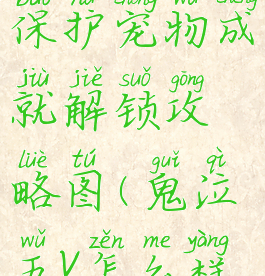 bǎo hù chǒng wù chéng
保护宠物成
jiù jiě suǒ gōng
就解锁攻
lüè tú guǐ qì
略图(鬼泣
wǔ zěn me yàng
五V怎么样